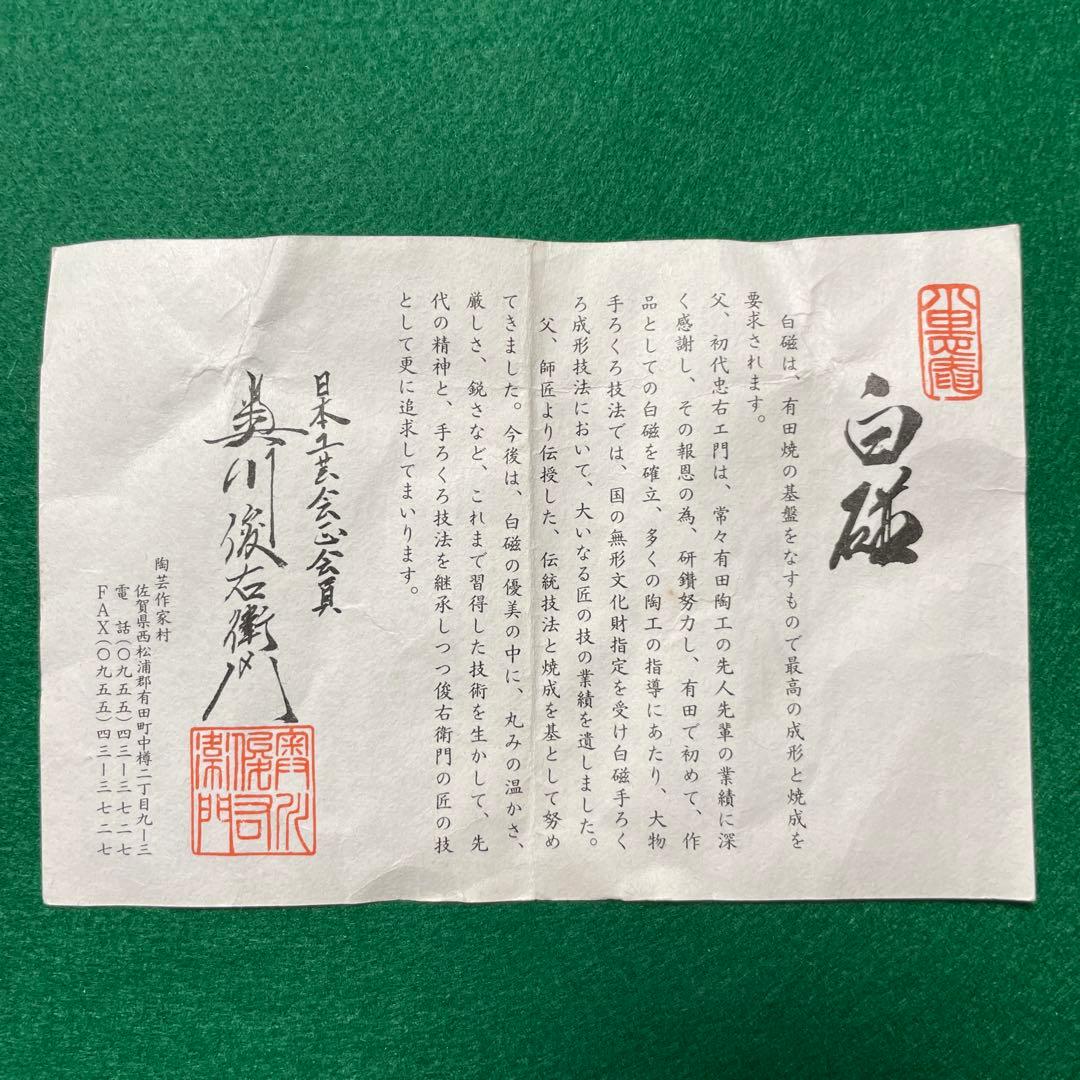 白磁
白磁は、有田焼の基盤をなすもので最高の成形と焼成を
要求されます。
父、初代忠右エ門は、常々有田陶工の先人先輩の業績に深
く感謝し、その報恩の為、研鑽努力し、有田で初めて、作
品としての白磁を確立、多くの陶工の指導にあたり、大物
手ろくろ技法では、国の無形文化財指定を受け白磁手ろく
ろ成形技法において、大いなる匠の技の業績を遺しました。
父、師匠より伝授した、伝統技法と焼成を基として努め
てきました。今後は、白磁の優美の中に、丸みの温かさ、
厳しさ、鋭さなど、これまで習得した技術を生かして、先
代の精神と、手ろくろ技法を継承しつつ俊右衛門の匠の技
として更に追求してまいります。
日本工芸会正会員
奥川俊右衛門
陶芸作家村
佐賀県西松浦郡有田町中樽二丁目九ー三
電話(〇九五五)四三ー三七二七
FAX(〇九五五)四三ー三七二七